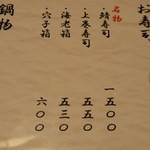 お寿司
名物
・鯖寿司 一五〇〇
・上巻寿司 五五〇
・海老箱 五三〇
・穴子箱 六〇〇
鍋物